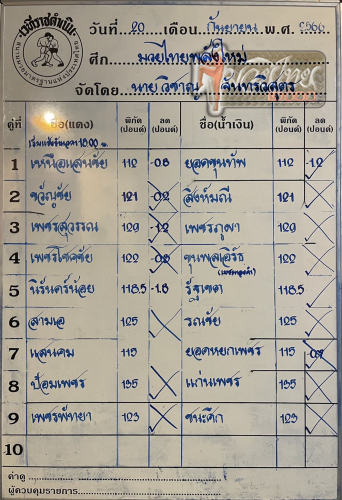 เวทีราชดำเนิน
วันที่ 20 เดือน กันยายน พ.ศ. 2566
ศึก มวยไทยพลังใหม่
จัดโดย นายวิชาญ จันทรวิสูตร
คู่ที่ ชื่อ(แดง) พิกัด (ปอนด์) ลด (ปอนด์) ชื่อ(น้ำเงิน) พิกัด (ปอนด์) ลด (ปอนด์)
1 เหนือแสนชัย 112 -0.8 ยอดขุนทัพ 112 -1.2
2 ขวัญชัย 121 -0.2 สิงห์มณี 121
3 เพชรสุวรรณ 129 -1.2 เพชรภูผา 129
4 เพชรโชคชัย 122 ขุนพลเอิร์ธ 122
5 นิรันดร์น้อย 118.5 -1.8 รัฐเขต 118.5
6 125 รณชัย 125
7 แสนคม 115 ยอดหยกเพชร 115
8 ป้อมเพชร 135 แก่นเพชร 135
9 เพชรพัทยา 123 ชนะศึก 123
10
ค่าดู
ผู้ควบคุมรายการ